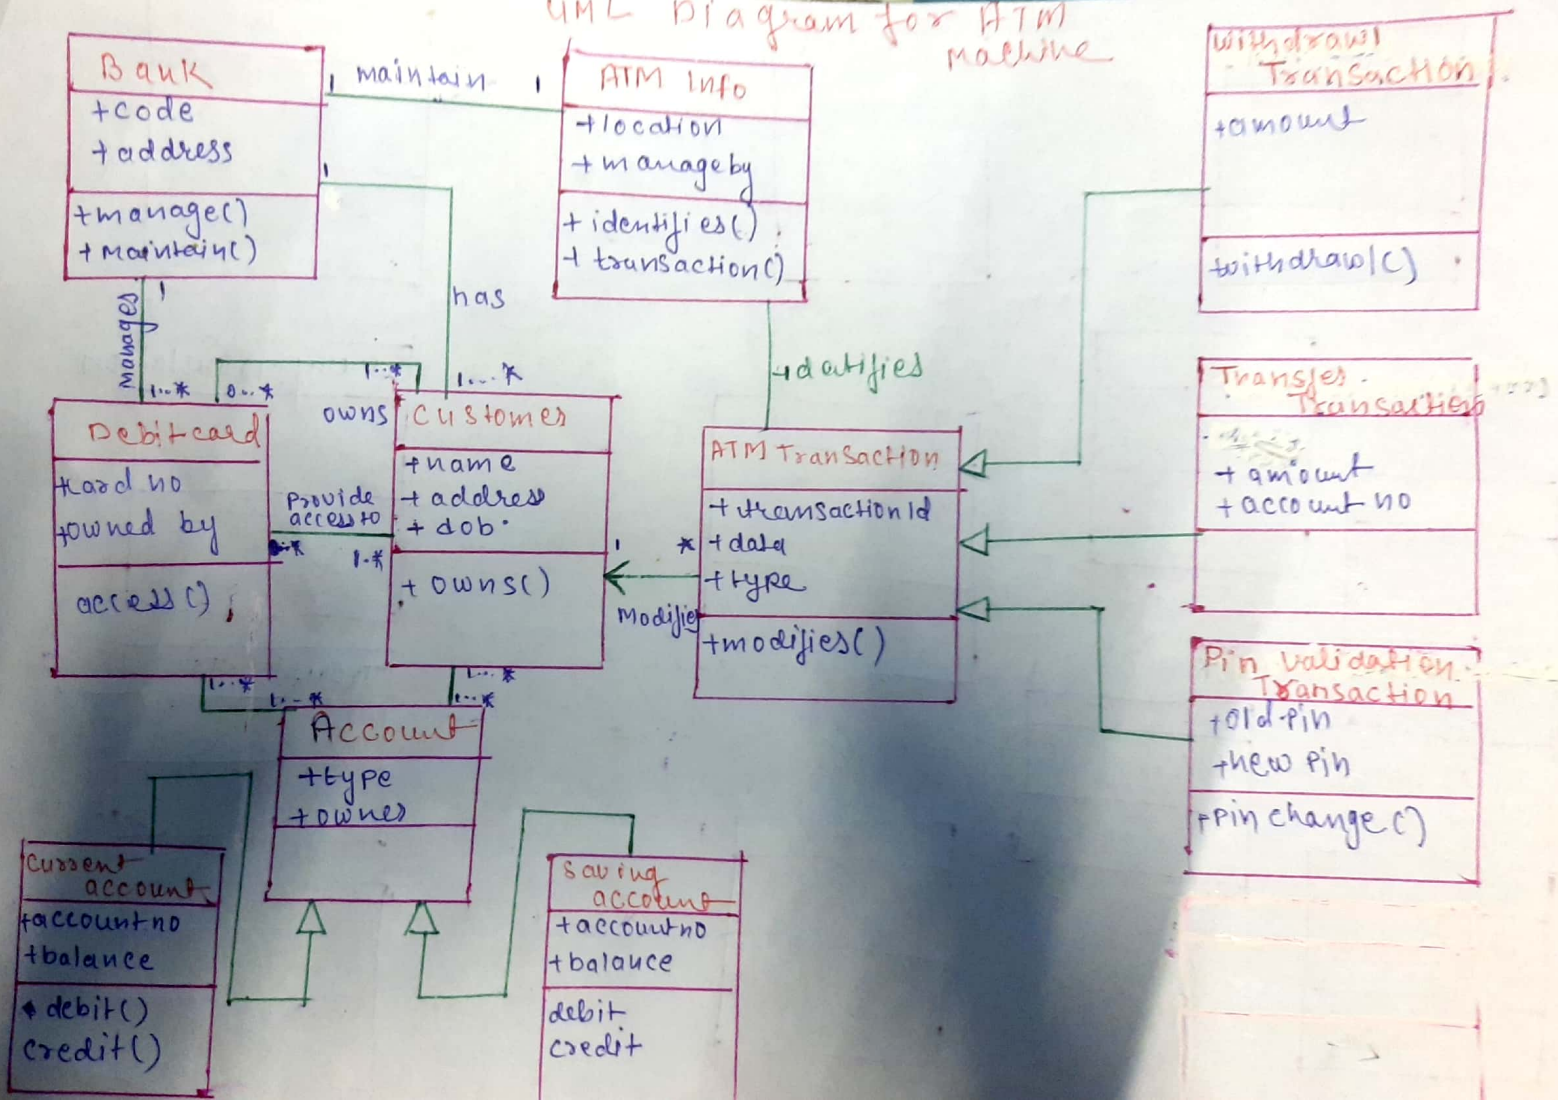 UML Diagram for ATM
machine
Bank
+code
+address
+manage()
+maintain()
1 maintain 1
ATM Info
+location
+manageby
+identifies()
+transaction()
withdrawl
Transaction
+amount
withdrawl()
1
has
1...*
manages
1
1...*
0...*
1...*
owns
+datifies
Debitcard
+card no
+owned by
access()
Provide
access to
1.*
Customer
+name
+address
+dob
+owns()
1
*
Modifie
ATM Transaction
+transactionId
+data
+type
+modifies()
Transfer
Transaction
+amount
+account no
Pin validation
Transaction
+old pin
+new pin
+pin change()
1...*
1...*
1...*
1...*
Account
+type
+owner
Current
account
+account no
+balance
debit()
credit()
Saving
account
+account no
+balance
debit
credit